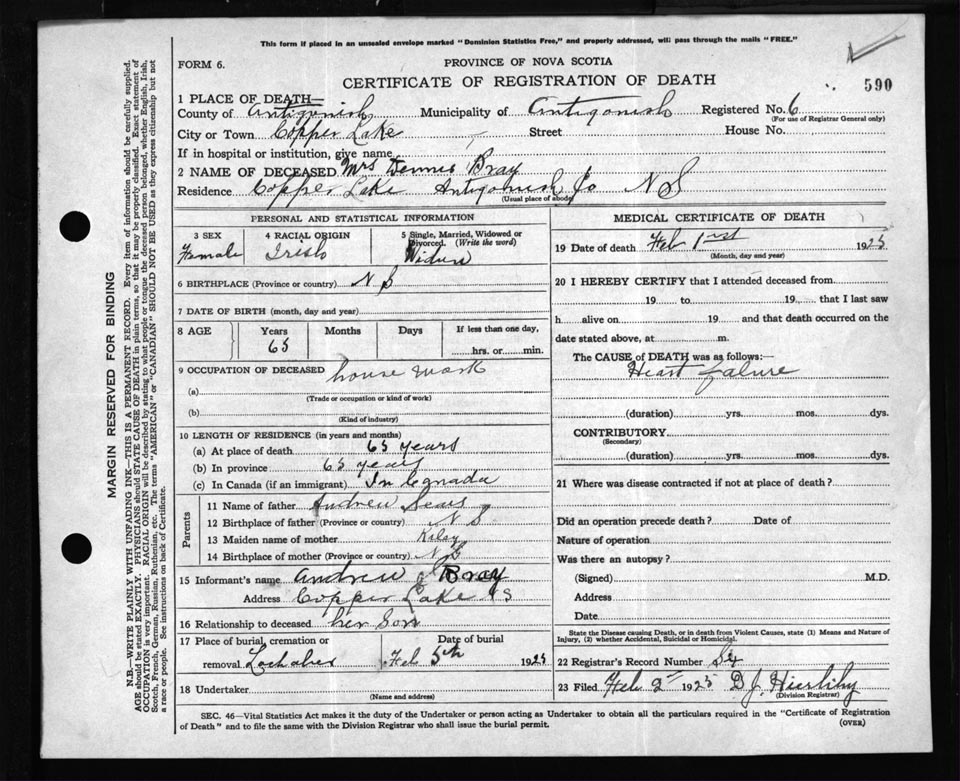 This form if placed in an unsealed envelope marked "Dominion Statistics Free," and properly addressed, will pass through the mails "FREE."
FORM 6.
PROVINCE OF NOVA SCOTIA
CERTIFICATE OF REGISTRATION OF DEATH
590
1 PLACE OF DEATH—
County of Antigonish Municipality of Antigonish Registered No. 6
(For use of Registrar General only)
City or Town Copper Lake Street House No.
If in hospital or institution, give name
2 NAME OF DECEASED Mrs Dennis Bray
Residence Copper Lake Antigonish Co N S
(Usual place of abode)
PERSONAL AND STATISTICAL INFORMATION
3 SEX 4 RACIAL ORIGIN 5 Single, Married, Widowed or Divorced. (Write the word)
Female Irish Widow
6 BIRTHPLACE (Province or country) N S
7 DATE OF BIRTH (month, day and year)
8 AGE Years Months Days If less than one day,
65 hrs. or min.
9 OCCUPATION OF DECEASED house work
(a)
(Trade or occupation or kind of work)
(b)
(Kind of industry)
10 LENGTH OF RESIDENCE (in years and months)
(a) At place of death 65 years
(b) In province 65 years
(c) In Canada (if an immigrant) In Canada
Parents
11 Name of father Andrew Sears
12 Birthplace of father (Province or country) N S
13 Maiden name of mother Kiley
14 Birthplace of mother (Province or country) N S
15 Informant's name Andrew J Bray
Address Copper Lake NS
16 Relationship to deceased her Son
17 Place of burial, cremation or Date of burial
removal Lochaber Feb 5th 1925
18 Undertaker
(Name and address)
MEDICAL CERTIFICATE OF DEATH
19 Date of death Feb 1st 1925
(Month, day and year)
20 I HEREBY CERTIFY that I attended deceased from
19 to 19 that I last saw
h alive on 19 and that death occurred on the
date stated above, at m.
The CAUSE of DEATH was as follows:—
Heart falure
(duration) yrs. mos. dys.
CONTRIBUTORY
(Secondary)
(duration) yrs. mos. dys.
21 Where was disease contracted if not at place of death?
Did an operation precede death? Date of
Nature of operation
Was there an autopsy?
(Signed) M.D.
Address
Date
State the Disease causing Death, or in death from Violent Causes, state (1) Means and Nature of Injury, (2) whether Accidental, Suicidal or Homicidal.
22 Registrar's Record Number
23 Filed Feb 2nd 1925 D J Hierlihy
(Division Registrar)
SEC. 46—Vital Statistics Act makes it the duty of the Undertaker or person acting as Undertaker to obtain all the particulars required in the "Certificate of Registration
of Death" and to file the same with the Division Registrar who shall issue the burial permit.
(OVER)
MARGIN RESERVED FOR BINDING
N.B.—WRITE PLAINLY WITH UNFADING INK—THIS IS A PERMANENT RECORD. Every item of information should be carefully supplied.
AGE should be stated EXACTLY. PHYSICIANS should STATE CAUSE OF DEATH in plain terms, so that it may be properly classified. Exact statement of
OCCUPATION is very important. RACIAL ORIGIN will be described by stating to what people or tongue the deceased person belonged, whether English, Irish,
Scotch, French, German, Russian, Ruthenian, etc. The terms "AMERICAN" or "CANADIAN" SHOULD NOT BE USED as they express citizenship but not
a race or people. See instructions on back of Certificate.